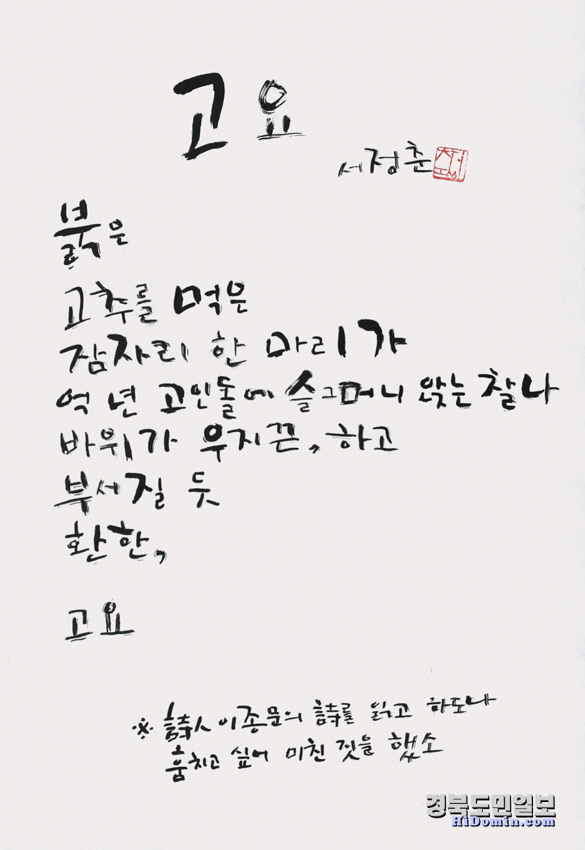 고요
서정춘
붉은
고추를 먹은
잠자리 한 마리가
억 년 고인돌에 슬그머니 앉는 찰나
바위가 우지끈, 하고
부서질 듯
환한,
고요
※ 詩人 이종문의 詩를 읽고 하도나
훔치고 싶어 미친 짓을 했소
경북도민일보
HiDomin.com